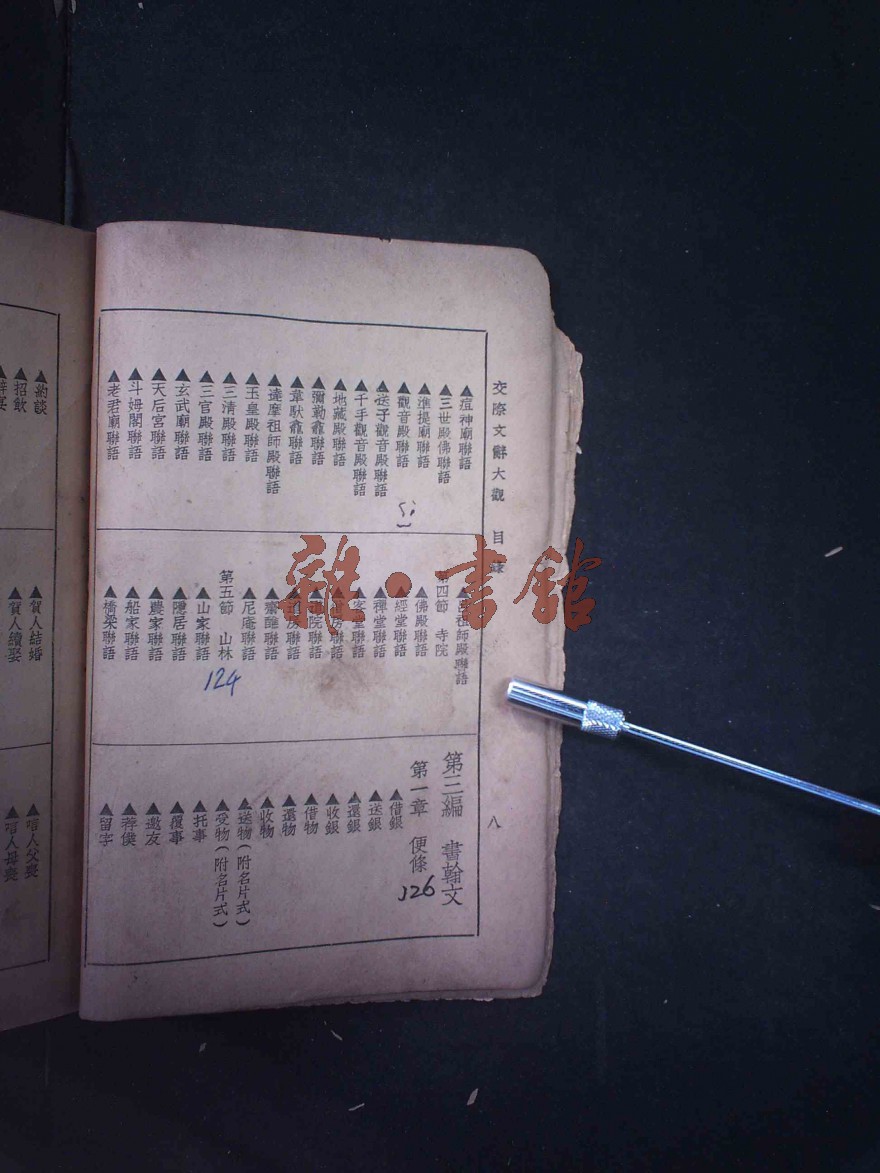 交際文辭大觀 目錄 八
▲瘟神廟聯語
▲三世殿佛聯語
▲準提廟聯語
▲觀音殿聯語
▲送子觀音殿聯語
▲千手觀音殿聯語
▲地藏殿聯語
▲彌勒龕聯語
▲韋馱龕聯語
▲達摩祖師殿聯語
▲玉皇殿聯語
▲三清殿聯語
▲三官殿聯語
▲玄武廟聯語
▲天后宮聯語
▲斗姆閣聯語
▲老君廟聯語
祖師殿聯語
第四節 寺院
▲佛殿聯語
▲經堂聯語
▲禪堂聯語
▲客堂聯語
房聯語
院聯語
房聯語
聯語
▲尼庵聯語
第五節 山林
124
▲山家聯語
▲隱居聯語
▲農家聯語
▲船家聯語
▲橋梁聯語
第三編 書翰文
第一章 便條
126
▲借銀
▲送銀
▲還銀
▲收銀
▲借物
▲還物
▲收物
▲送物(附名片式)
▲受物(附名片式)
▲托事
▲覆事
▲邀友
▲荐僕
▲留字
▲約談
▲招飲
▲賀人結婚
▲賀人續娶
▲唁人父喪
▲唁人母喪
雜·書館